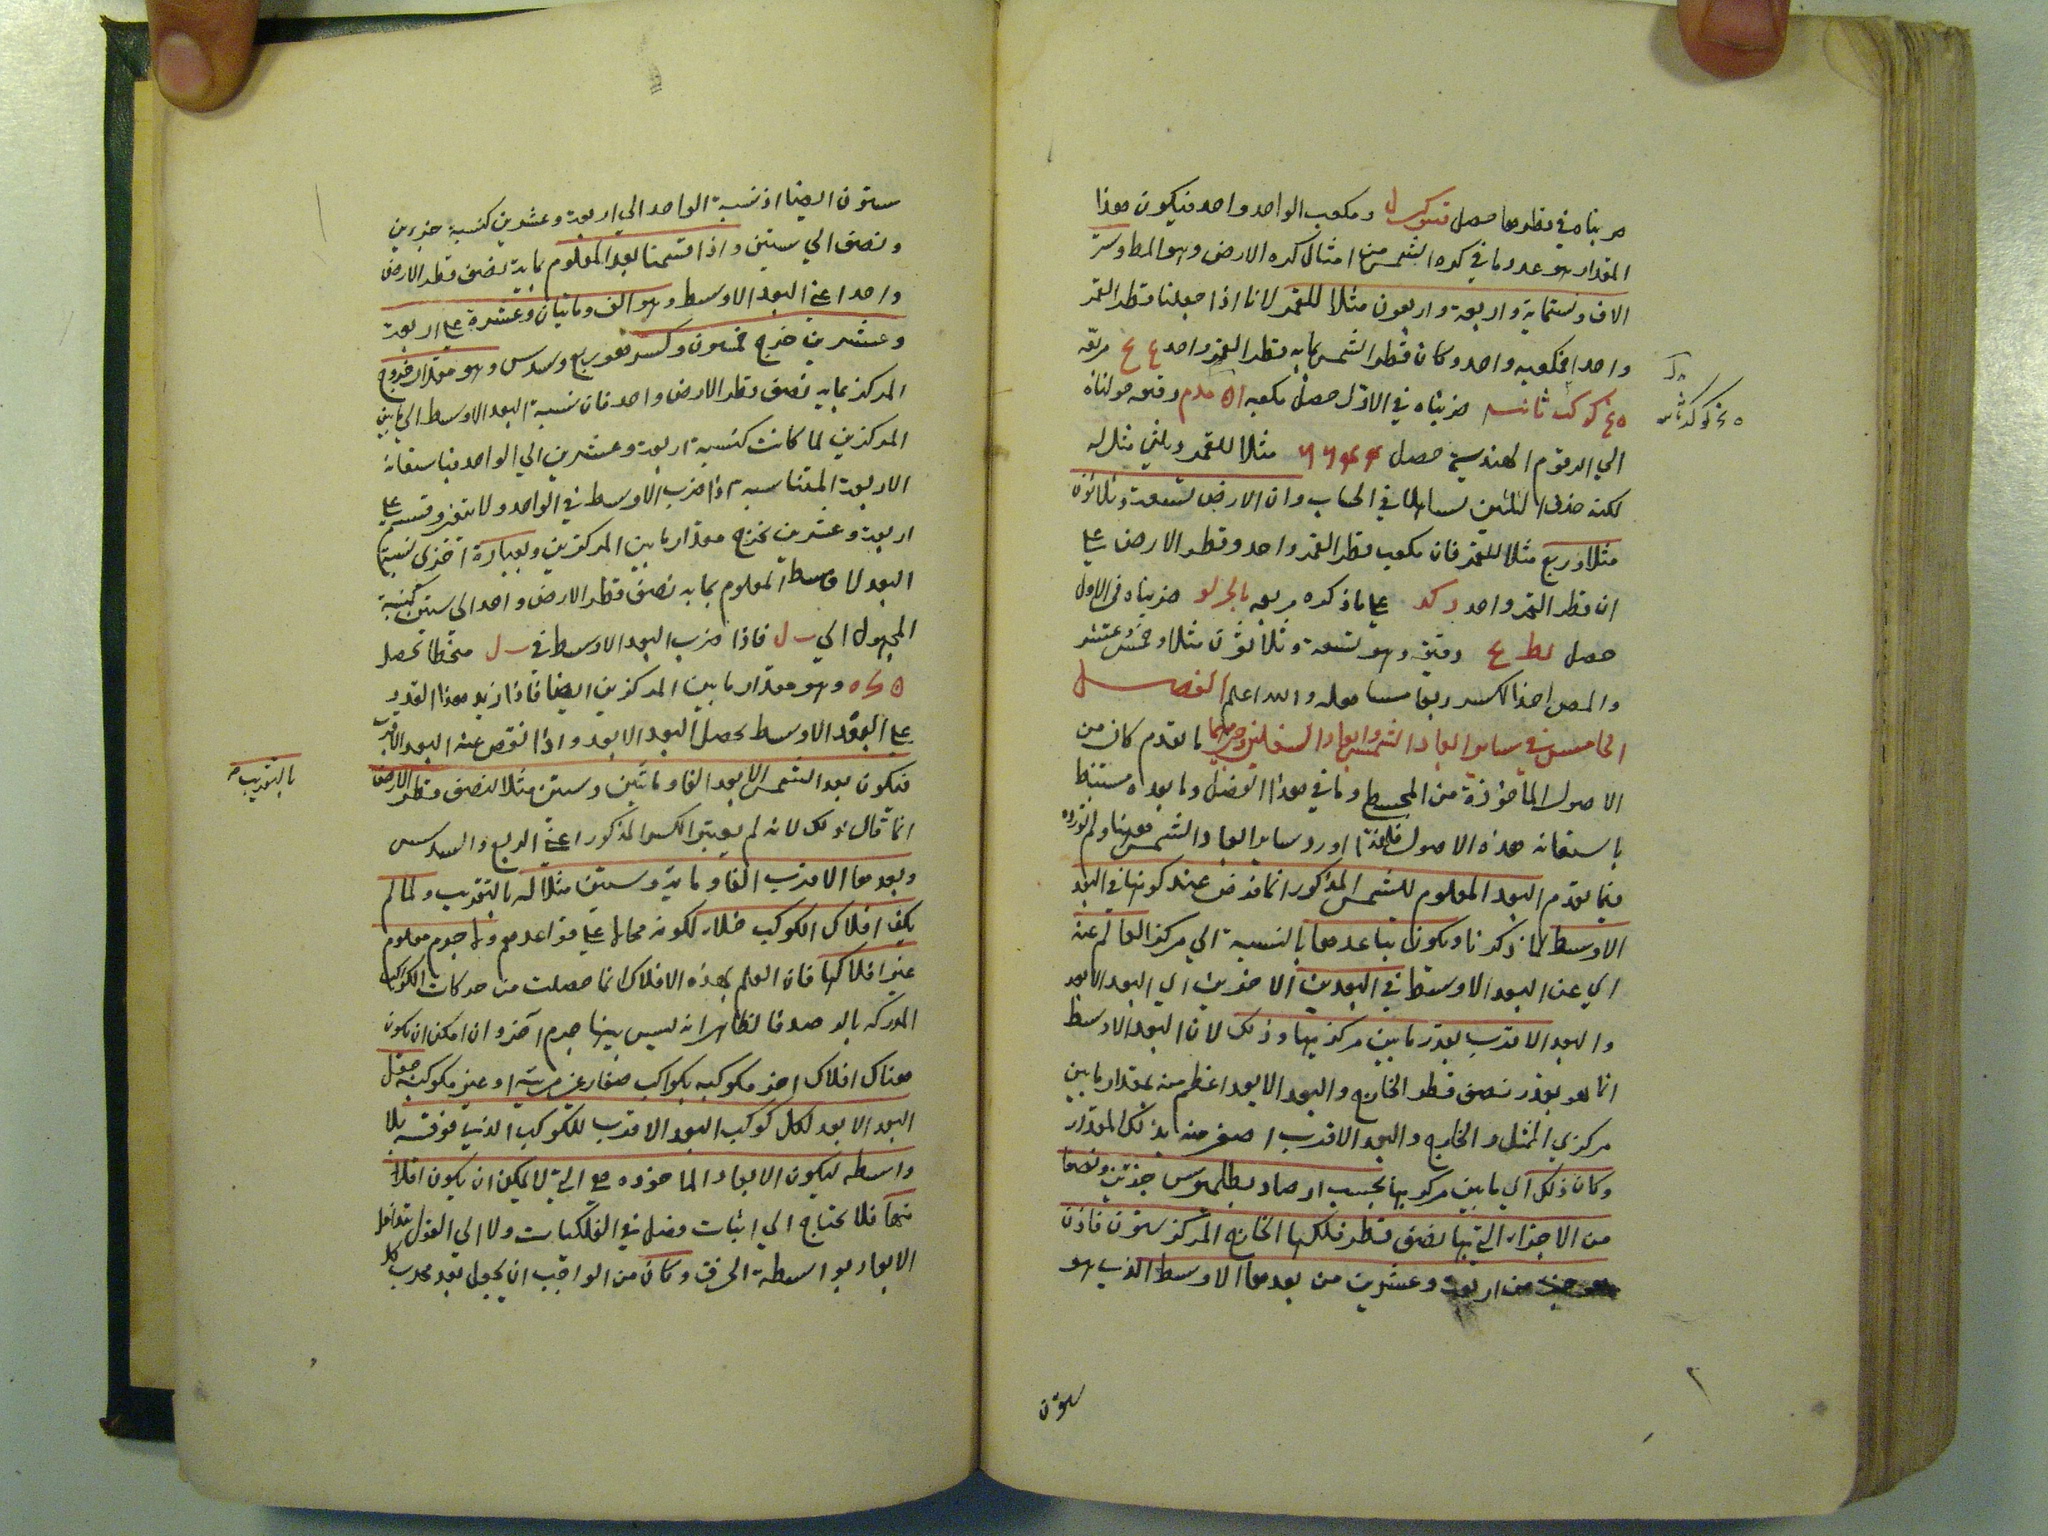 ضربناه في قطرها حصل ومكعب الواحد واحد فيكون هذا
المقدار هو عدد ما في كره الشمس من امثال كره الارض وهو المط وستة
الاف وستماية واربعة واربعون مثلا للقمر لانا اذا جعلنا قطر القمر
واحدا فمكعبه واحد وكان قطر الشمس بما به قطر القمر واحد مربعه
ثانيه ضربناه في الاول حصل مكعبه دقيقه حولناه
الي الرقوم الهندسية حصل ٦٦٤٤ مثلا للقمر وثلثي مثل له
لكنه حذف الثلثين تساهلا في الحساب وان الارض تسعة وثلاثون
مثلا وربع مثلا للقمر فان مكعب قطر القمر واحد وقطر الارض علي
ان قطر القمر واحد علي ما ذكره مربعه ضربناه في الاول
حصل لط دقيقه وهو تسعة وثلاثون مثلا وخمس وعشر
والمص اخذ الكسر ربعا مساهله والله اعلم الفصل
الخامس في ساير ابعاد الشمس وابعاد السفليين وجرميهما ما تقدم كان من
الاصول الماخوذة من المجسطي وما في هذا الفصل وما بعده مستنبط
باستعانه هذه الاصول فلهذا اورد ساير ابعاد الشمس ههنا ولم تورده
فيما تقدم البعد المعلوم للشمس المذكور انما فرض عند كونها في البعد
الاوسط لما ذكرنا ويكون تباعدها بالنسبة الي مركز العالم عنه
اي عن البعد الاوسط في البعدين الاخرين اي البعد الابعد
والبعد الاقرب بقدر ما بين مركزيها وذلك لان البعد الاوسط
انما هو بقدر نصف قطر الخارج والبعد الابعد اعظم منه بمقدار ما بين
مركزي الممثل والخارج والبعد الاقرب اصغر منه بذلك المقدار
وكان ذلك اي ما بين مركزيها بحسب ارصاد بطلميوس جزئين ونصفا
من الاجزاء التي بها نصف قطر فلكها الخارج المركز ستون فاذن
جزء من اربعة وعشرين من بعدها الاوسط الذي هو
ستون
ستون ايضا اذ نسبة الواحد الي اربعة وعشرين كنسبة جزءين
ونصف الي ستين واذا قسمنا بعد المعلوم بما به نصف قطر الارض
واحد اعني البعد الاوسط وهو الف ومائتان وعشرة علي اربعة
وعشرين خرج خمسون وكسر هو ربع وسدس وهو مقدار خروج
المركز بما به نصف قطر الارض واحد فان نسبة البعد الاوسط الي ما بين
المركزين لما كانت كنسبة اربعة وعشرين الي الواحد فباستعانة
الاربعة المتناسبة اذا ضرب الاوسط في الواحد ولا يتغير وقسم علي
اربعة وعشرين يخرج مقدار ما بين المركزين وبعبارة اخري نسبة
البعد الاوسط المعلوم بما به نصف قطر الارض واحد الي ستين كنسبة
المجهول الي ب ل فاذا ضرب البعد الاوسط في ب ل منحطا تحصل
وهو مقدار ما بين المركزين ايضا فاذا زيد هذا القدر
علي البعد الاوسط يحصل البعد الابعد واذا نقص عنه البعد الاقرب
فيكون بعد الشمس الابعد الفا ومائتين وستين مثلا لنصف قطر الارض
بالتقريب
انما قال ذلك لانه لم يعتبر الكسر المذكور اعني الربع والسدس
وبعدها الاقرب الفا وماية وستين مثلا له بالتقريب ولما لم
يكن افلاك الكوكب خلاء لكونه محالا علي قواعدهم ولا جرم معلوم
غير افلاكها فان العلم بهذه الافلاك انما حصلت من حركات الكواكب
المدركه بالرصد فالظاهر انه ليس بينها جرم آخر وان امكن ان يكون
هناك افلاك اخر مكوكبه بكواكب صغار غير مرئية او غير مكوكبه جعل
البعد الابعد لكل كوكب البعد الاقرب للكوكب الذي فوقه بلا
واسطه ليكون الابعاد الماخوذه هي التي لا يمكن ان يكون اقل
منها فلا يحتاج الي اثبات فضل في الفلكيات ولا الي القول بتداخل
الابعاد بواسطة الخرق وكان من الواجب ان يجعل بعد محدب كل